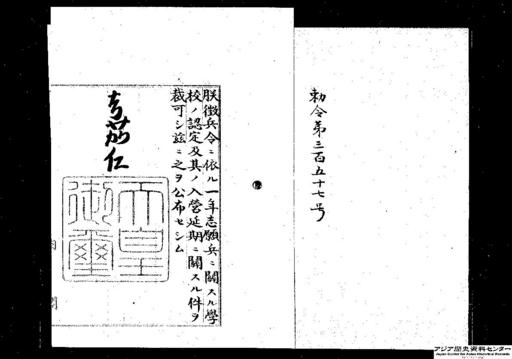 勅令第三百五十七号
朕徴兵令ニ依ル一年志願兵ニ關スル學
校ノ認定及其ノ入營延期ニ關スル件ヲ
裁可シ茲ニ之ヲ公布セシム
嘉仁
天皇御璽
アジア歴史資料センター
Japan Center for Asian Historical Records